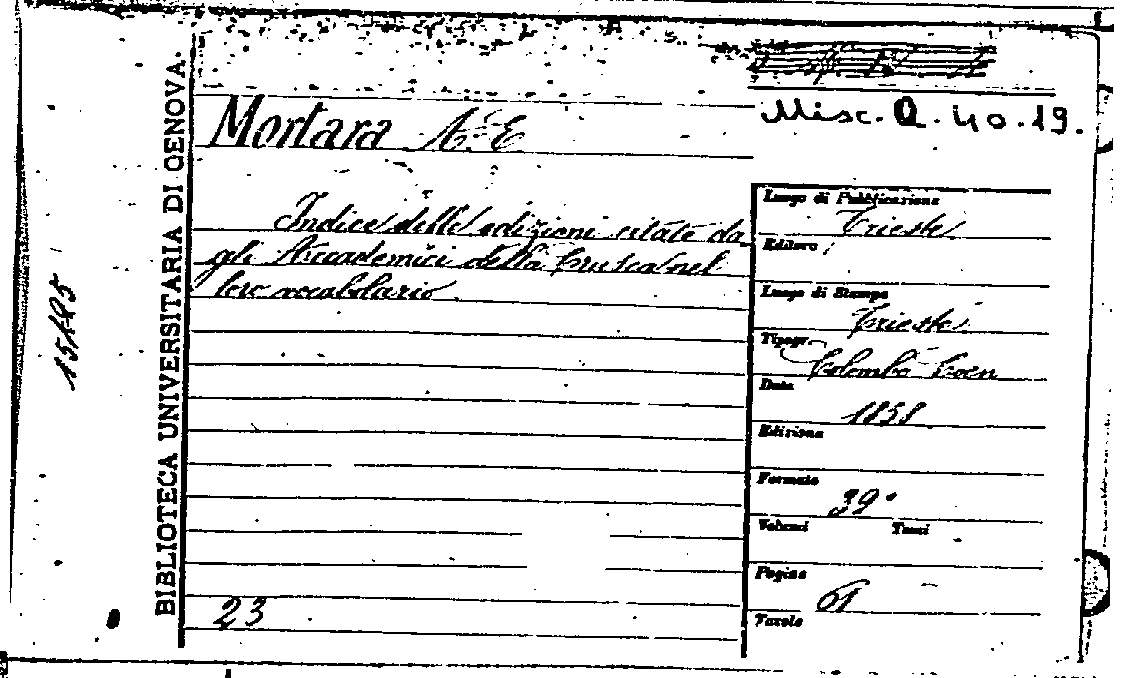 Misc. Q. 40.19.
Mortara A. E
Indice delle edizioni citate da
gli Accademici della Crusca nel
loro vocabolario
23
BIBLIOTECA UNIVERSITARIA DI GENOVA.
Luogo di Pubblicazione
Trieste
Editore
Luogo di Stampa
Trieste
Tipogr.
Colombo Coen
Data
1858
Edizione
Formato
39°
Volumi Tomi
Pagine
61
Tavole